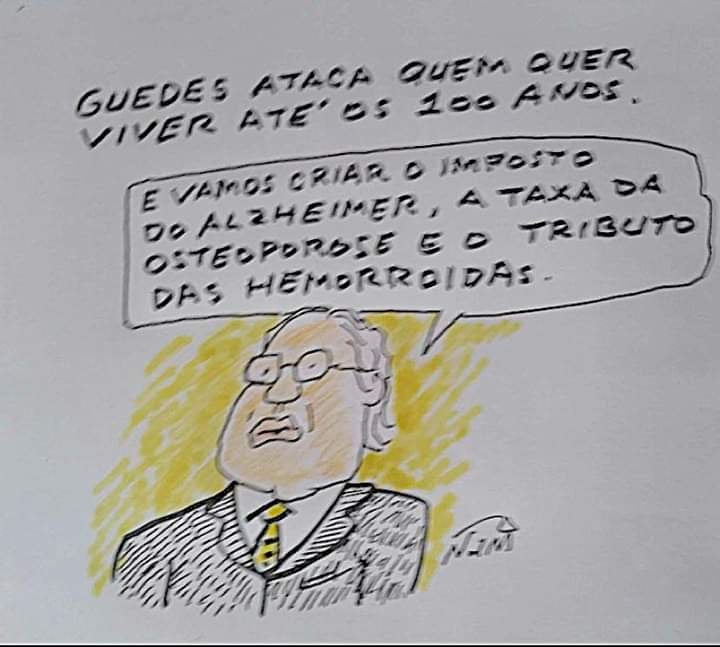 GUEDES ATACA QUEM QUER
VIVER ATÉ OS 100 ANOS.
E VAMOS CRIAR O IMPOSTO
DO ALZHEIMER, A TAXA DA
OSTEOPOROSE E O TRIBUTO
DAS HEMORROIDAS.